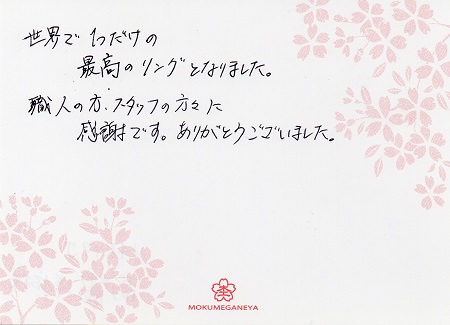 世界で1つだけの
最高のリングとなりました。
職人の方、スタッフの方々に
感謝です。ありがとうございました。
MOKUMEGANEYA